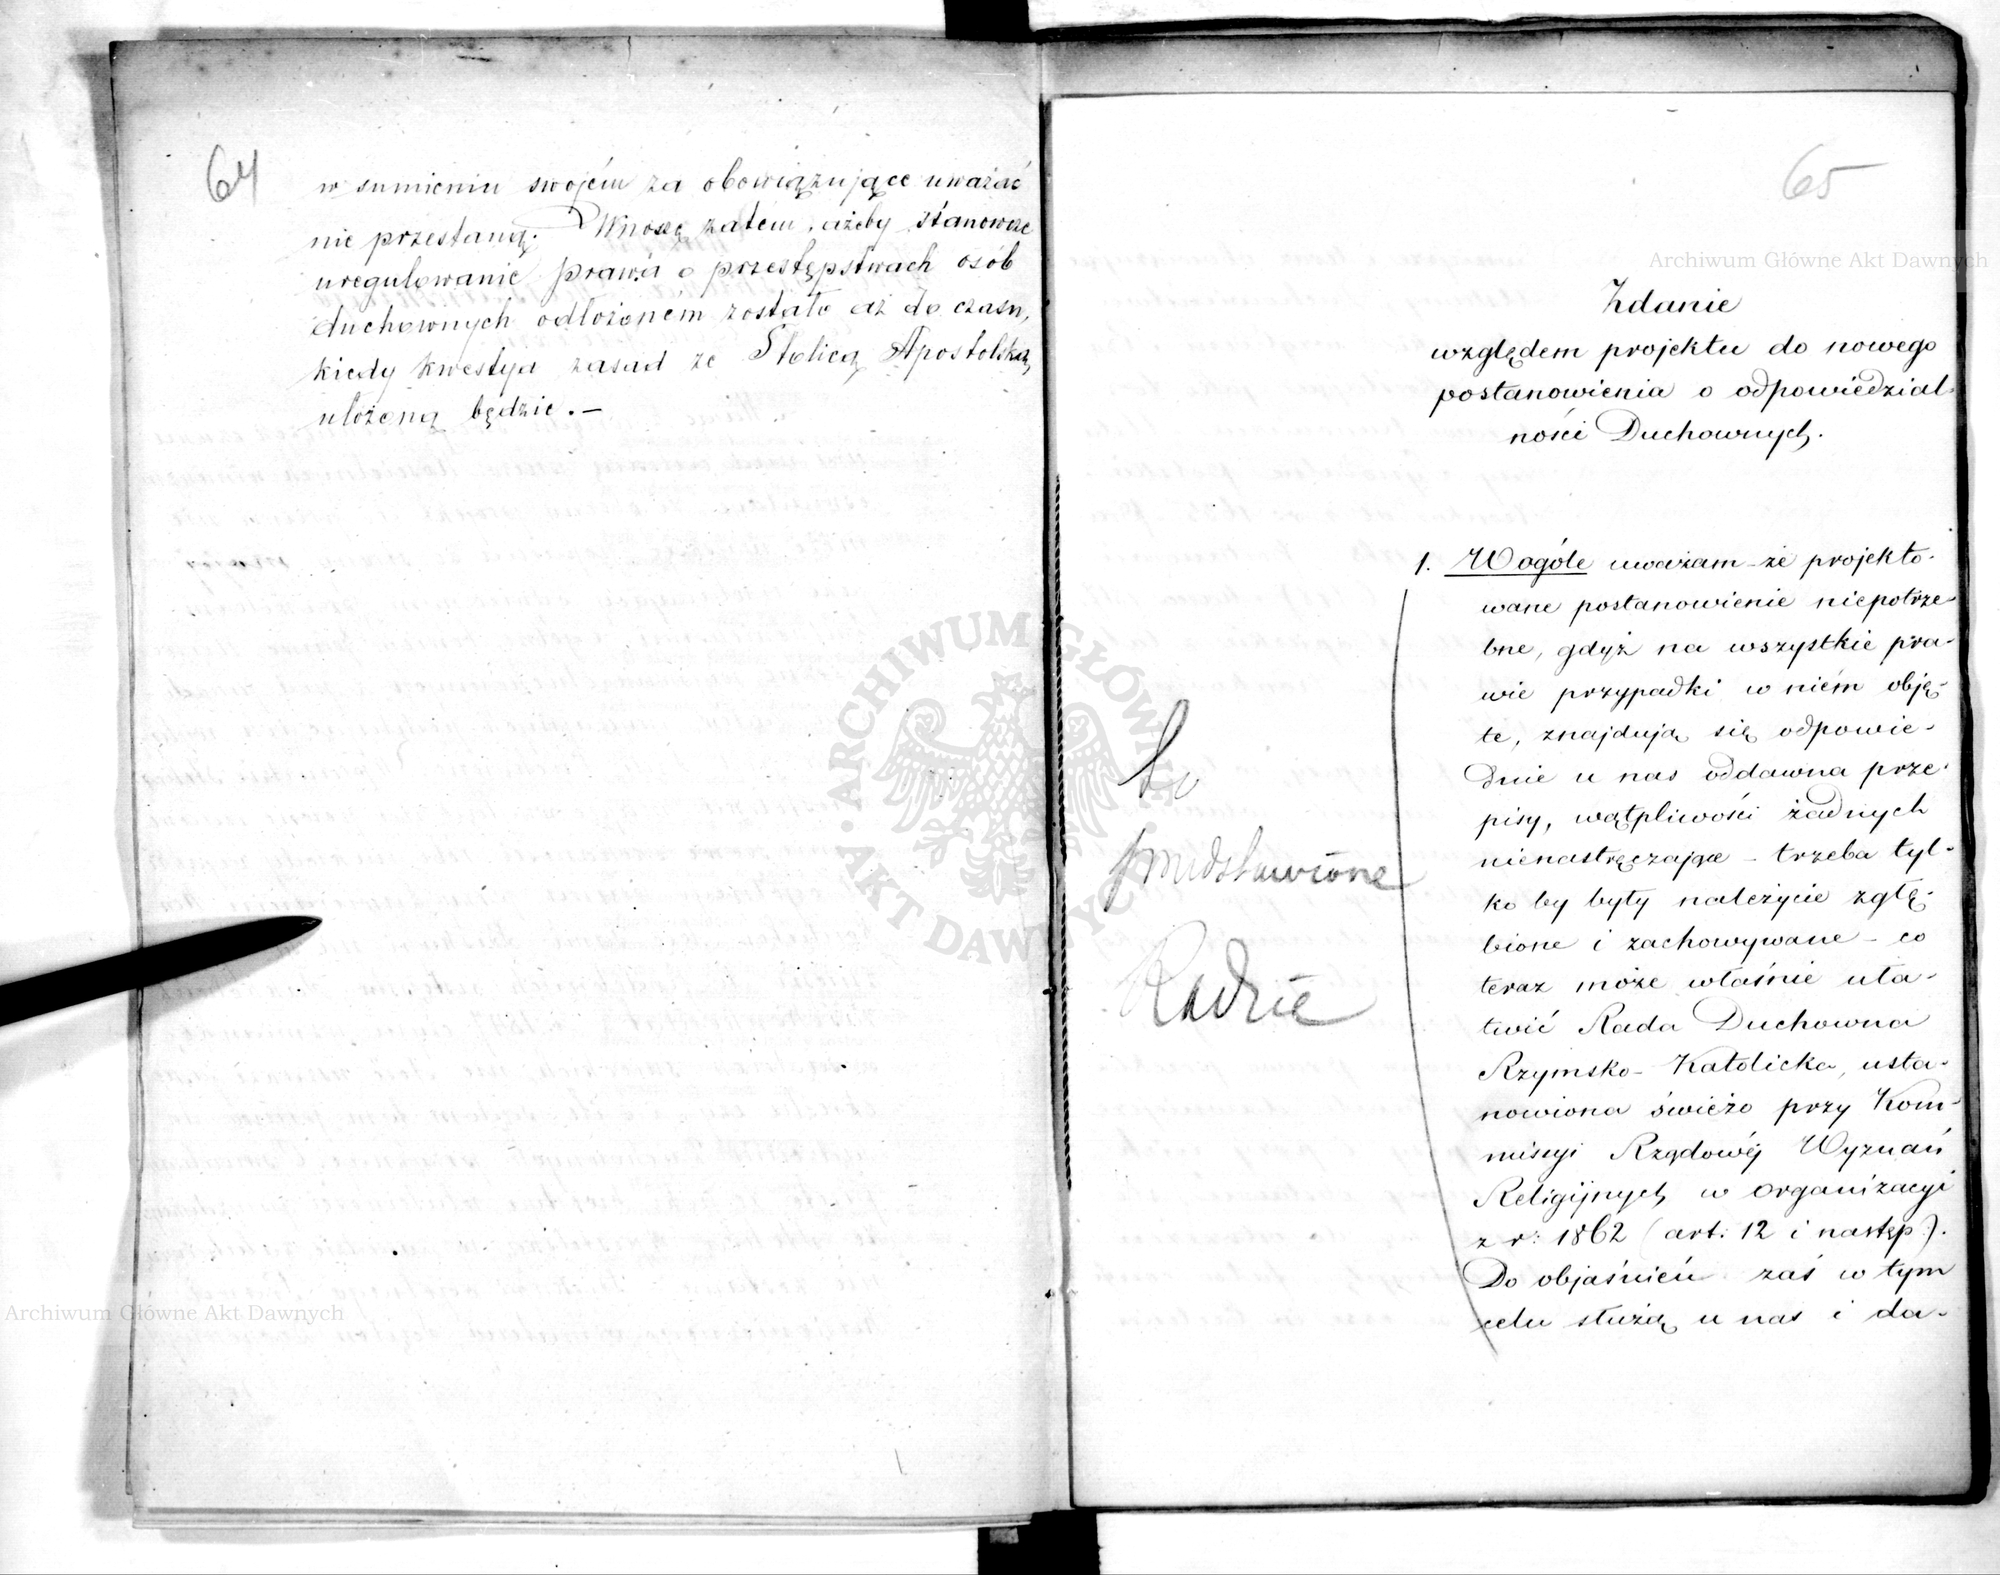 64
w sumieniu swojém za obowiązujące uważać
nie przestaną. Wnoszę zatém, ażeby stanowcze
uregulowanie prawa o przestępstwach osób
duchownych odłożoném zostało aż do czasu,
kiedy kwestya zasad ze Stolicą Apostolską
ułożoną będzie. —
65
Zdanie
względem projektu do nowego
postanowienia o odpowiedzial-
ności Duchownych.
1. Wogóle uważam – że projekto-
wane postanowienie niepotrze-
bne, gdyż na wszystkie pra-
wie przypadki w niém obję-
te, znajdują się odpowie-
dnie u nas oddawna prze-
pisy, wątpliwości żadnych
nienastręczające – trzeba tyl-
ko by były należycie zgłę-
bione i zachowywane – co
teraz może właśnie uła-
twić Rada Duchowna
Rzymsko-Katolicka, usta-
nowiona świeżo przy Kom-
missyi Rządowéj Wyznań
Religijnych w organizacyi
z r: 1862 (art: 12 i następ:).
Do objaśnień zaś w tym
celu służą u nas i da-
przedstawione
Radzie
Archiwum Główne Akt Dawnych
ARCHIWUM GŁÓWNE
AKT DAWNYCH
Archiwum Główne Akt Dawnych